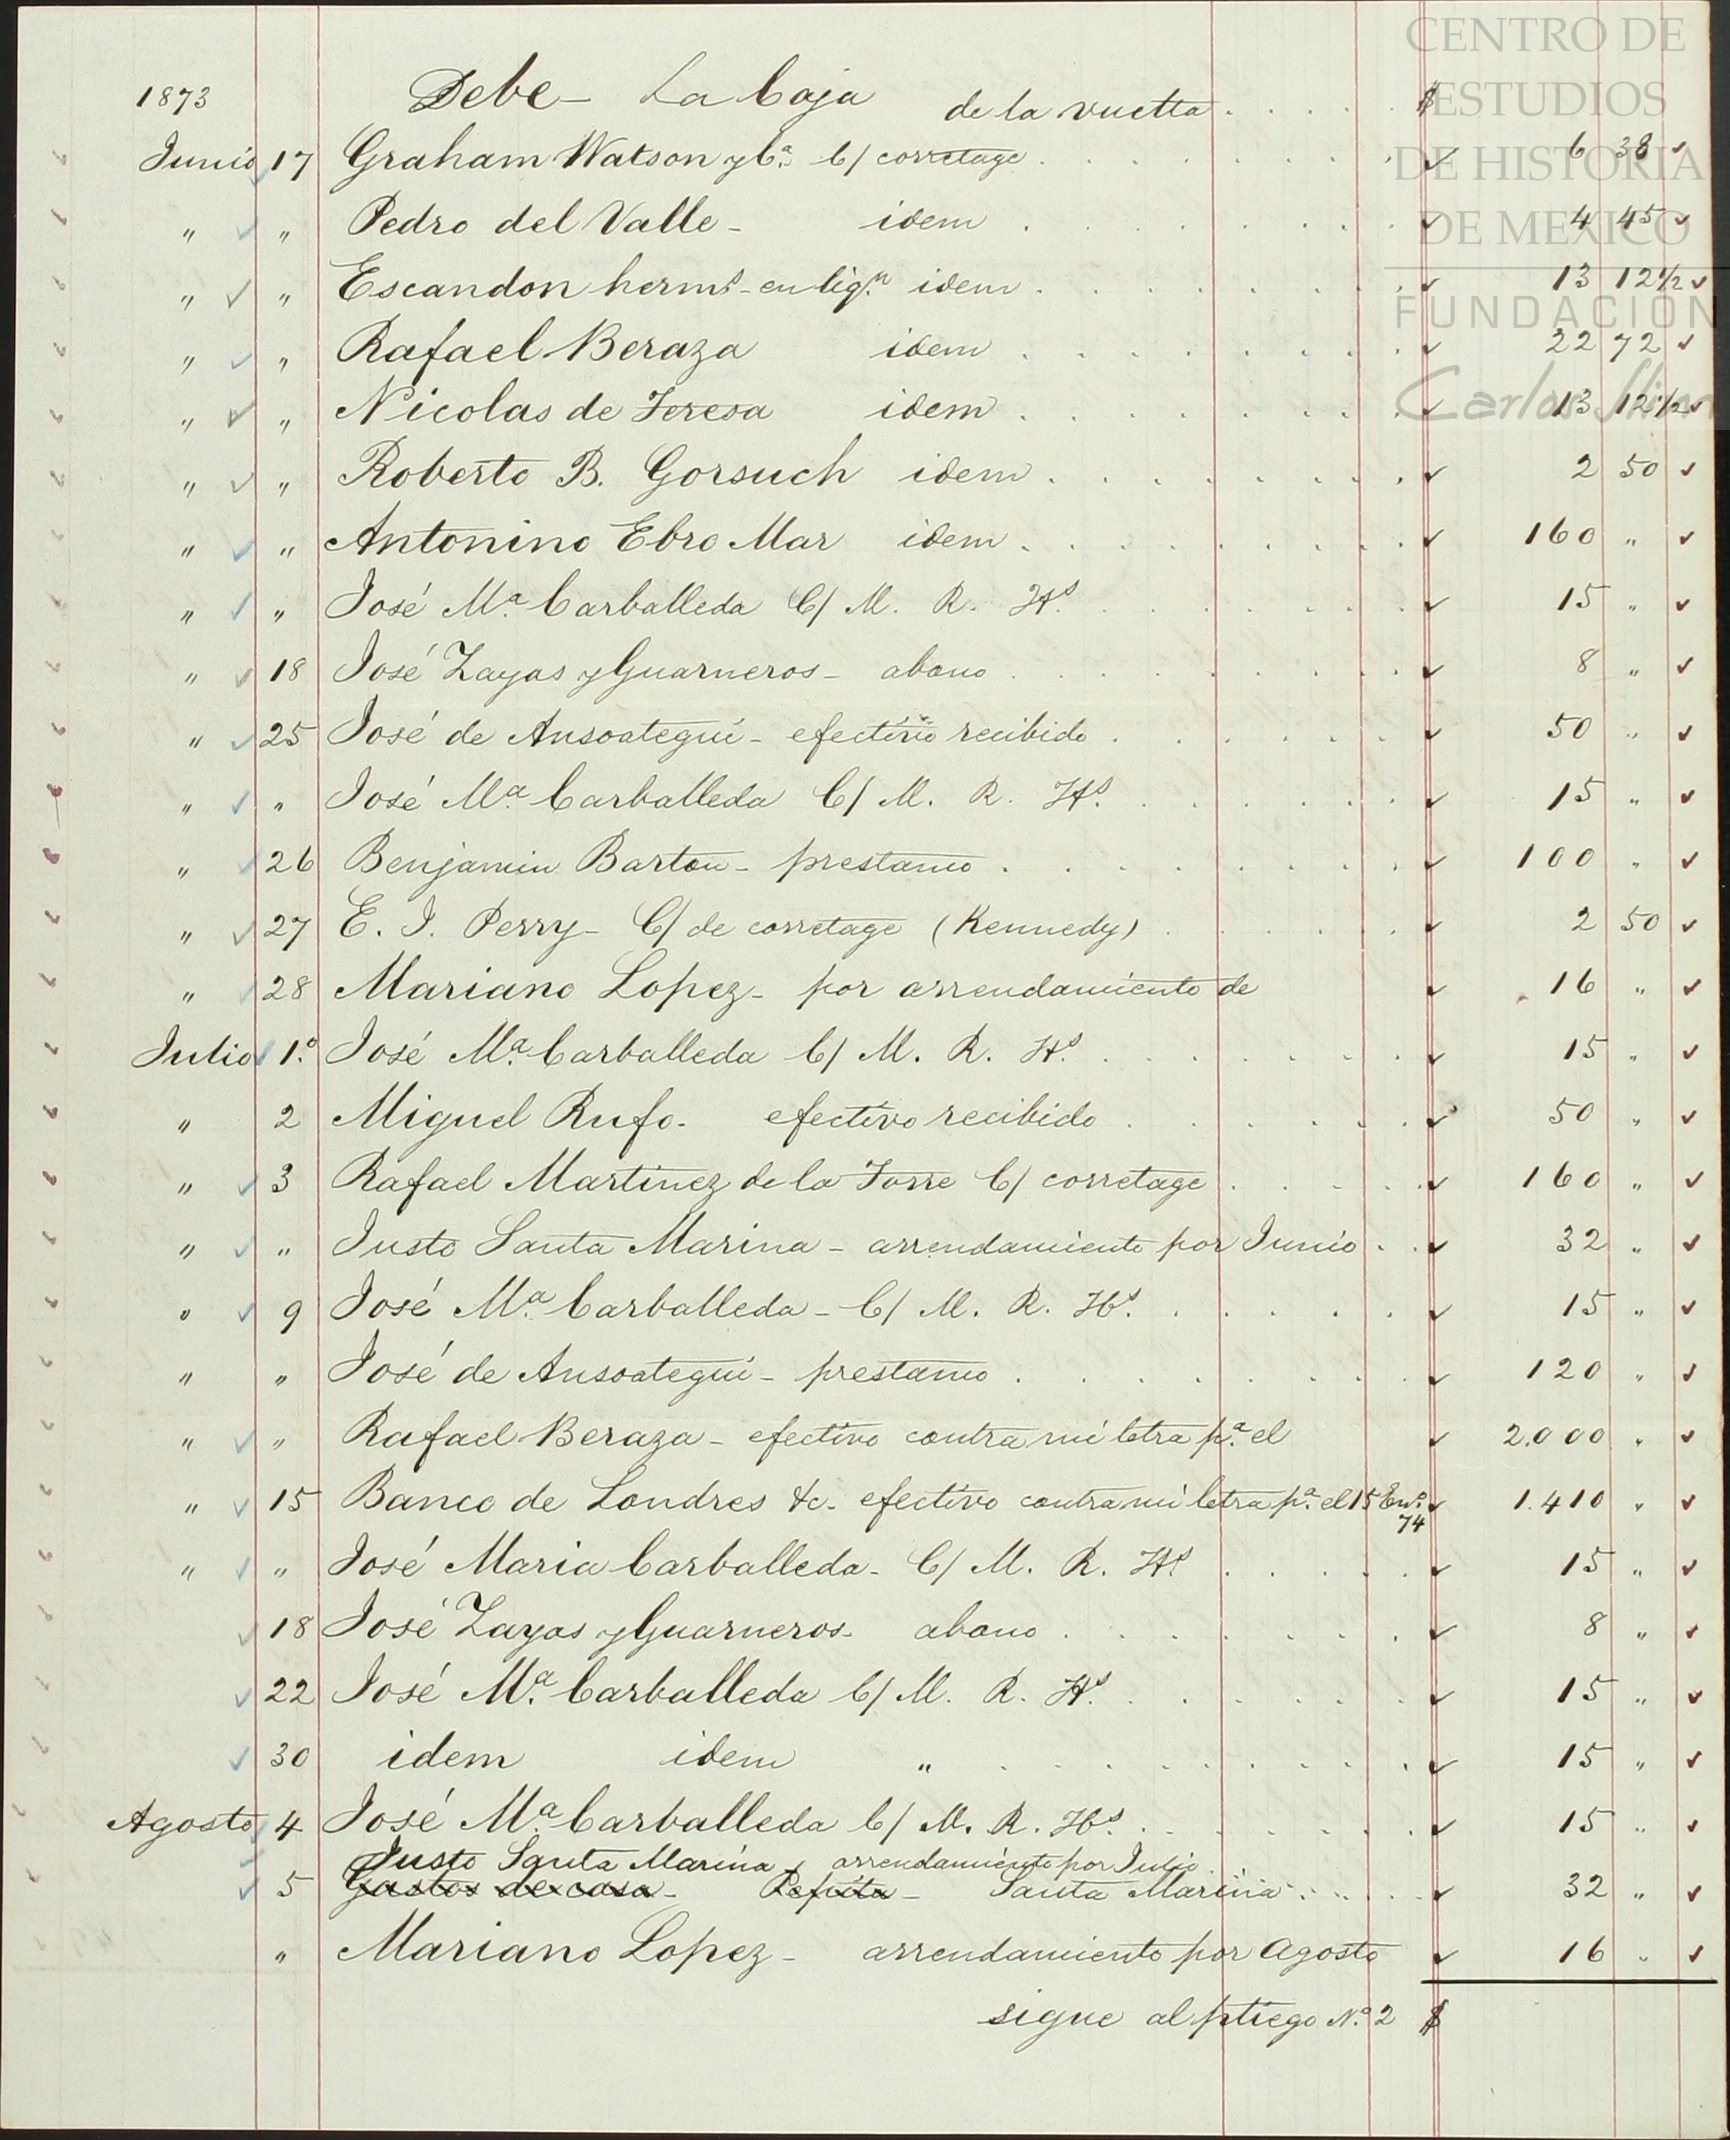 CENTRO DE
ESTUDIOS
DE HISTORIA
DE MEXICO
FUNDACIÓN
Carlos Slim
1873 Debe - La Caja de la vuelta . . . . . $
Junio 17 Graham Watson y Cª. C/ corretage 6 38
" " Pedro del Valle - idem 4 45
" " Escandon hermˢ. en liqⁿ. idem 13 12½
" " Rafael Beraza idem 22 72
" " Nicolas de Teresa idem 13 12½
" " Roberto B. Gorsuch idem 2 50
" " Antonino Ebro Mar idem 160 "
" " José Mª. Carballeda C/ M. R. Hˢ. 15 "
" 18 José Zayas y Guarneros - abono 8 "
" 25 José de Ansoategui - efectivo recibido 50 "
" " José Mª. Carballeda C/ M. R. Hˢ. 15 "
" 26 Benjamin Barton - prestamo 100 "
" 27 E. J. Perry - C/ de corretage (Kennedy) 2 50
" 28 Mariano Lopez - por arrendamiento de 16 "
Julio 1.º José Mª. Carballeda C/ M. R. Hˢ. 15 "
" 2 Miguel Rufo - efectivo recibido 50 "
" 3 Rafael Martinez de la Torre C/ corretage 160 "
" " Justo Santa Marina - arrendamiento por Junio 32 "
" 9 José Mª. Carballeda - C/ M. R. Hˢ. 15 "
" " José de Ansoategui - prestamo 120 "
" " Rafael Beraza - efectivo contra mi letra pª. el 2.000 "
" 15 Banco de Londres &c. efectivo contra mi letra pª. el 15 Enº. 74 1.410 "
" " José Maria Carballeda - C/ M. R. Hˢ 15 "
18 José Zayas y Guarneros - abono 8 "
22 José Mª. Carballeda C/ M. R. Hˢ. 15 "
30 idem idem " 15 "
Agosto 4 José Mª. Carballeda C/ M. R. Hˢ. 15 "
Justo Santa Marina, arrendamiento por Julio
5 Gastos de casa - Pepita - Santa Marina 32 "
" Mariano Lopez - arrendamiento por Agosto 16 "
sigue al pliego Nº. 2 $